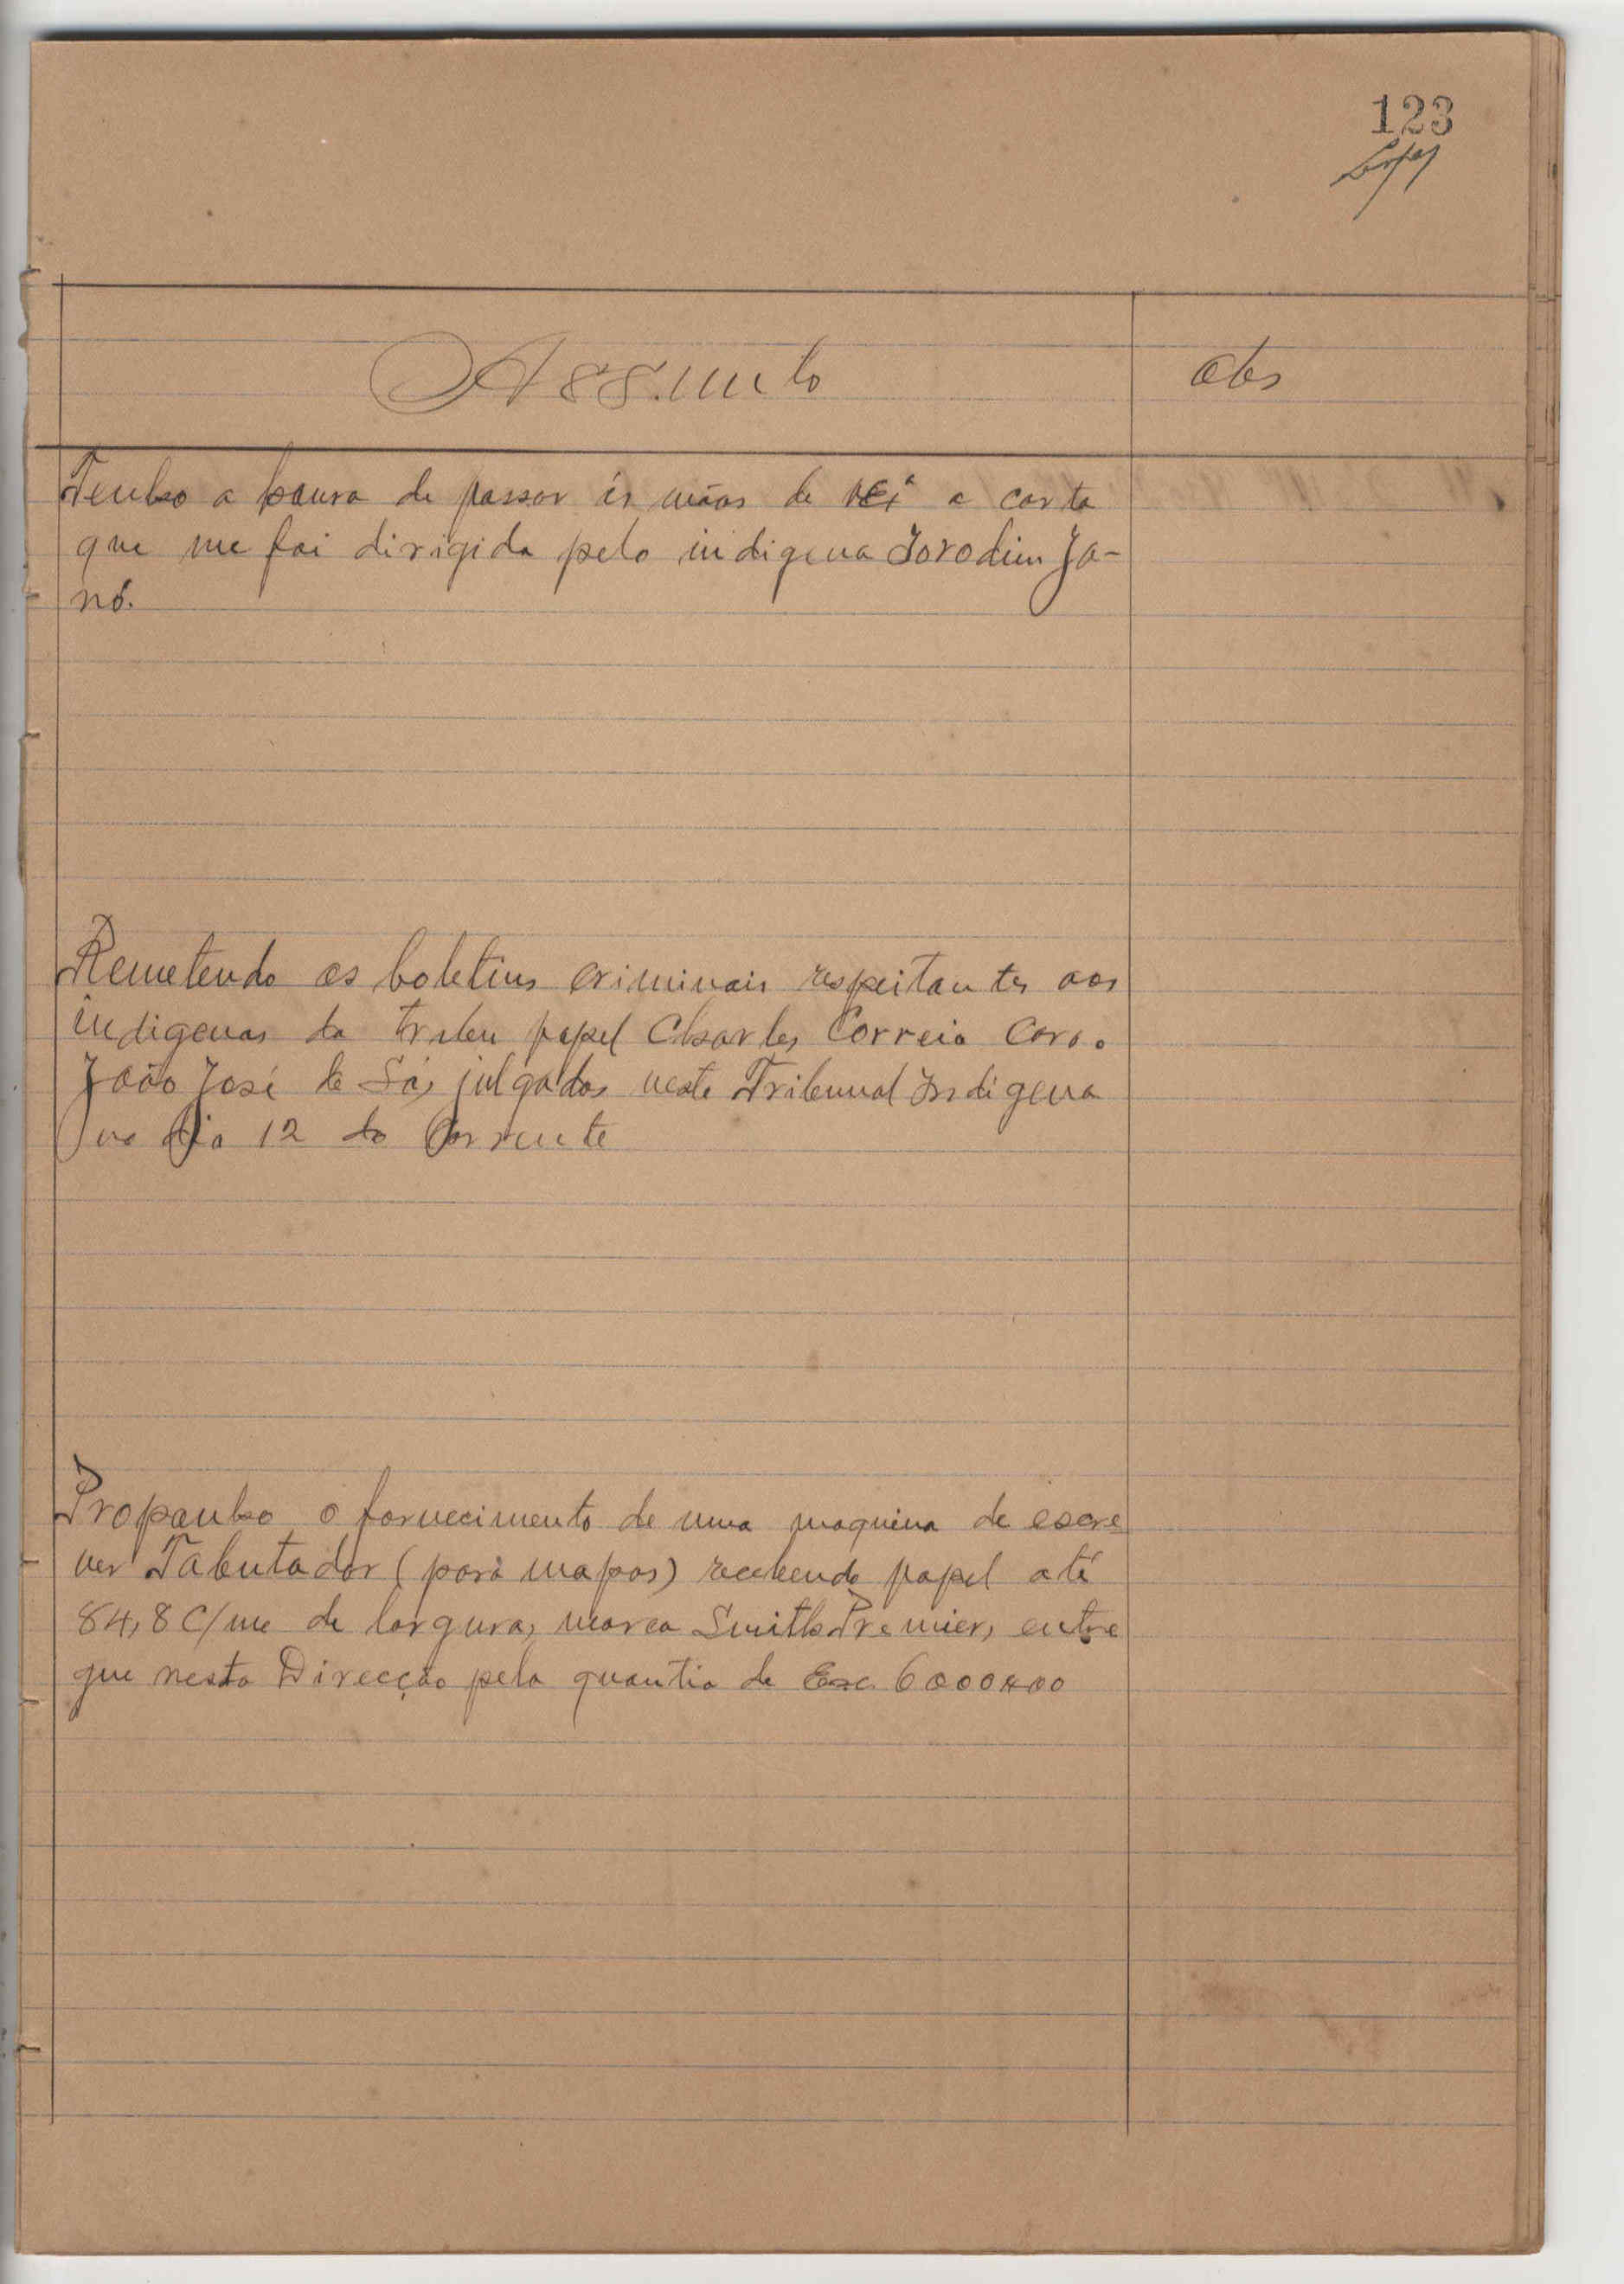 123
Assunto
Obs
Tenho a honra de passar ás mãos de V Exª a carta
que me foi dirigida pelo indigena Jorodim Ja-
nó.
Remetendo os boletins criminais respeitantes aos
indigenas da tribu papel Charles Correia
João José de Sá, julgados neste Tribunal Indigena
no dia 12 do Corrente
Proponho o fornecimento de uma maquina de escre
ver Tabutador (para mapas) recebendo papel até
84,8 C/m de largura, marca Smith Premier, entre
gue nesta Direcção pela quantia de Esc. 6000$00